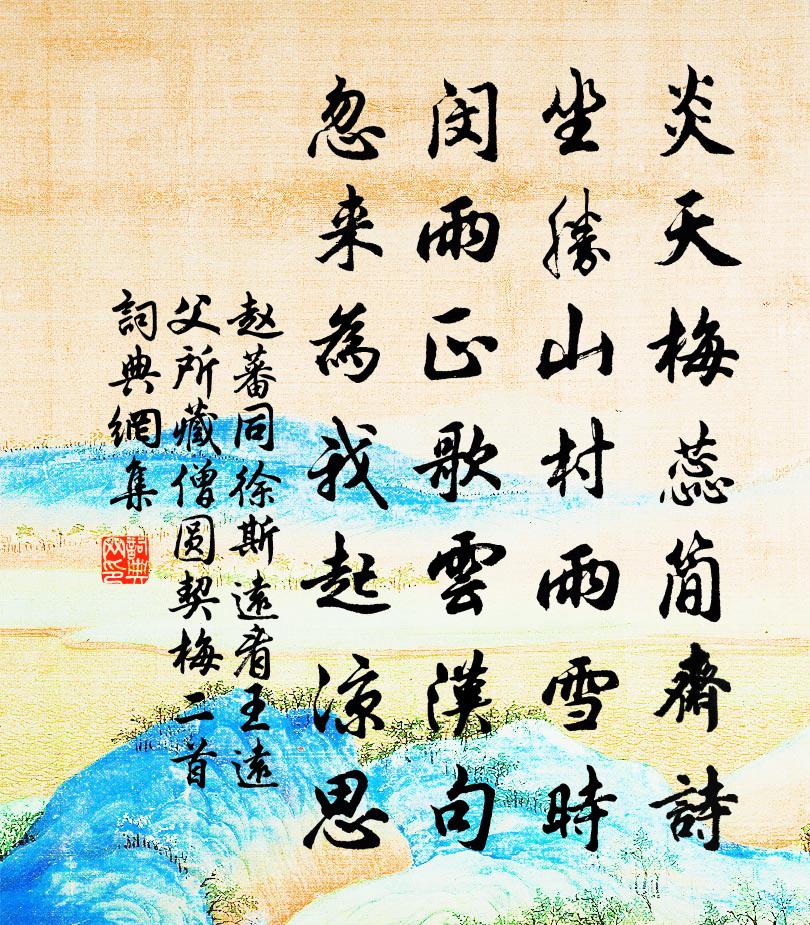 炎天梅蕊简齋詩
坐勝山村雨雪時
闵雨正歌雲漢句
忽来為我起涼思
赵蕃同徐斯遠看王遠
父所藏僧圆契梅二首
詞典網集
詞典
网印